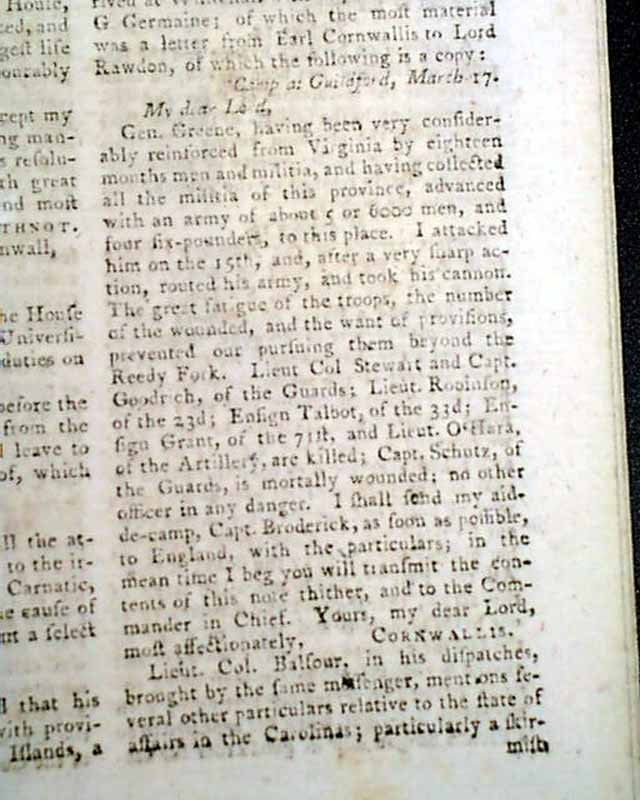 House,
ted, and
gest life
ourably
cept my
ng man-
s resolu-
th great
nd most
THNOT.
nwall,
he House
Universi-
duties on
before the
from the
l leave to
of, which
ll the at-
to the ir-
Carnatic,
he cause of
a select
ll that his
with provi-
Islands, a
rived at
G Germaine; of which the most material
was a letter from Earl Cornwallis to Lord
Rawdon, of which the following is a copy:
Camp at Guildford, March 17.
My dear Lord,
Gen. Greene, having been very consider-
ably reinforced from Virginia by eighteen
months men and militia, and having collected
all the militia of this province, advanced
with an army of about 5 or 6000 men, and
four six-pounders, to this place. I attacked
him on the 15th, and, after a very sharp ac-
tion, routed his army, and took his cannon.
The great fatigue of the troops, the number
of the wounded, and the want of provisions,
prevented our pursuing them beyond the
Reedy Fork. Lieut Col Stewart and Capt.
Goodrich, of the Guards; Lieut. Robinson,
of the 23d; Ensign Talbot, of the 33d; En-
sign Grant, of the 71st, and Lieut. O'Hara,
of the Artillery, are killed; Capt. Schutz, of
the Guards, is mortally wounded; no other
officer in any danger. I shall send my aid-
de-camp, Capt. Broderick, as soon as possible,
to England, with the particulars; in the
mean time I beg you will transmit the con-
tents of this note thither, and to the Com-
mander in Chief. Yours, my dear Lord,
most affectionately, CORNWALLIS.
Lieut. Col. Balfour, in his dispatches,
brought by the same messenger, mentions se-
veral other particulars relative to the state of
affairs in the Carolinas; particularly a skir-
mish